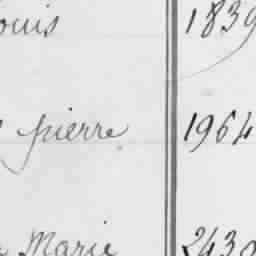 ouis 1839
pierre 1964
Marie 2438